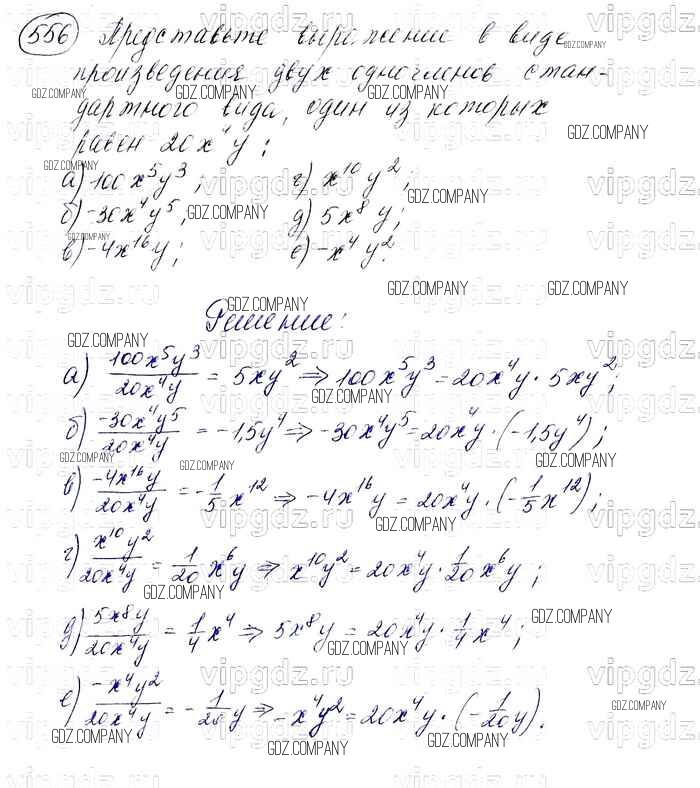 556 Представьте выражение в виде
произведения двух одночленов стан-
дартного вида, один из которых
равен 20x⁴y:
а) 100x⁵y³; г) x¹⁰y²;
б) -30x⁴y⁵; д) 5x⁸y;
в) -4x¹⁶y; е) -x⁴y².
Решение:
а) 100x⁵y³/20x⁴y = 5xy² ⇒ 100x⁵y³ = 20x⁴y · 5xy²;
б) -30x⁴y⁵/20x⁴y = -1,5y⁴ ⇒ -30x⁴y⁵ = 20x⁴y · (-1,5y⁴);
в) -4x¹⁶y/20x⁴y = -1/5x¹² ⇒ -4x¹⁶y = 20x⁴y · (-1/5x¹²);
г) x¹⁰y²/20x⁴y = 1/20x⁶y ⇒ x¹⁰y² = 20x⁴y · 1/20x⁶y;
д) 5x⁸y/20x⁴y = 1/4x⁴ ⇒ 5x⁸y = 20x⁴y · 1/4x⁴;
е) -x⁴y²/20x⁴y = -1/20y ⇒ -x⁴y² = 20x⁴y · (-1/20y).
GDZ.COMPANY
vipgdz.ru